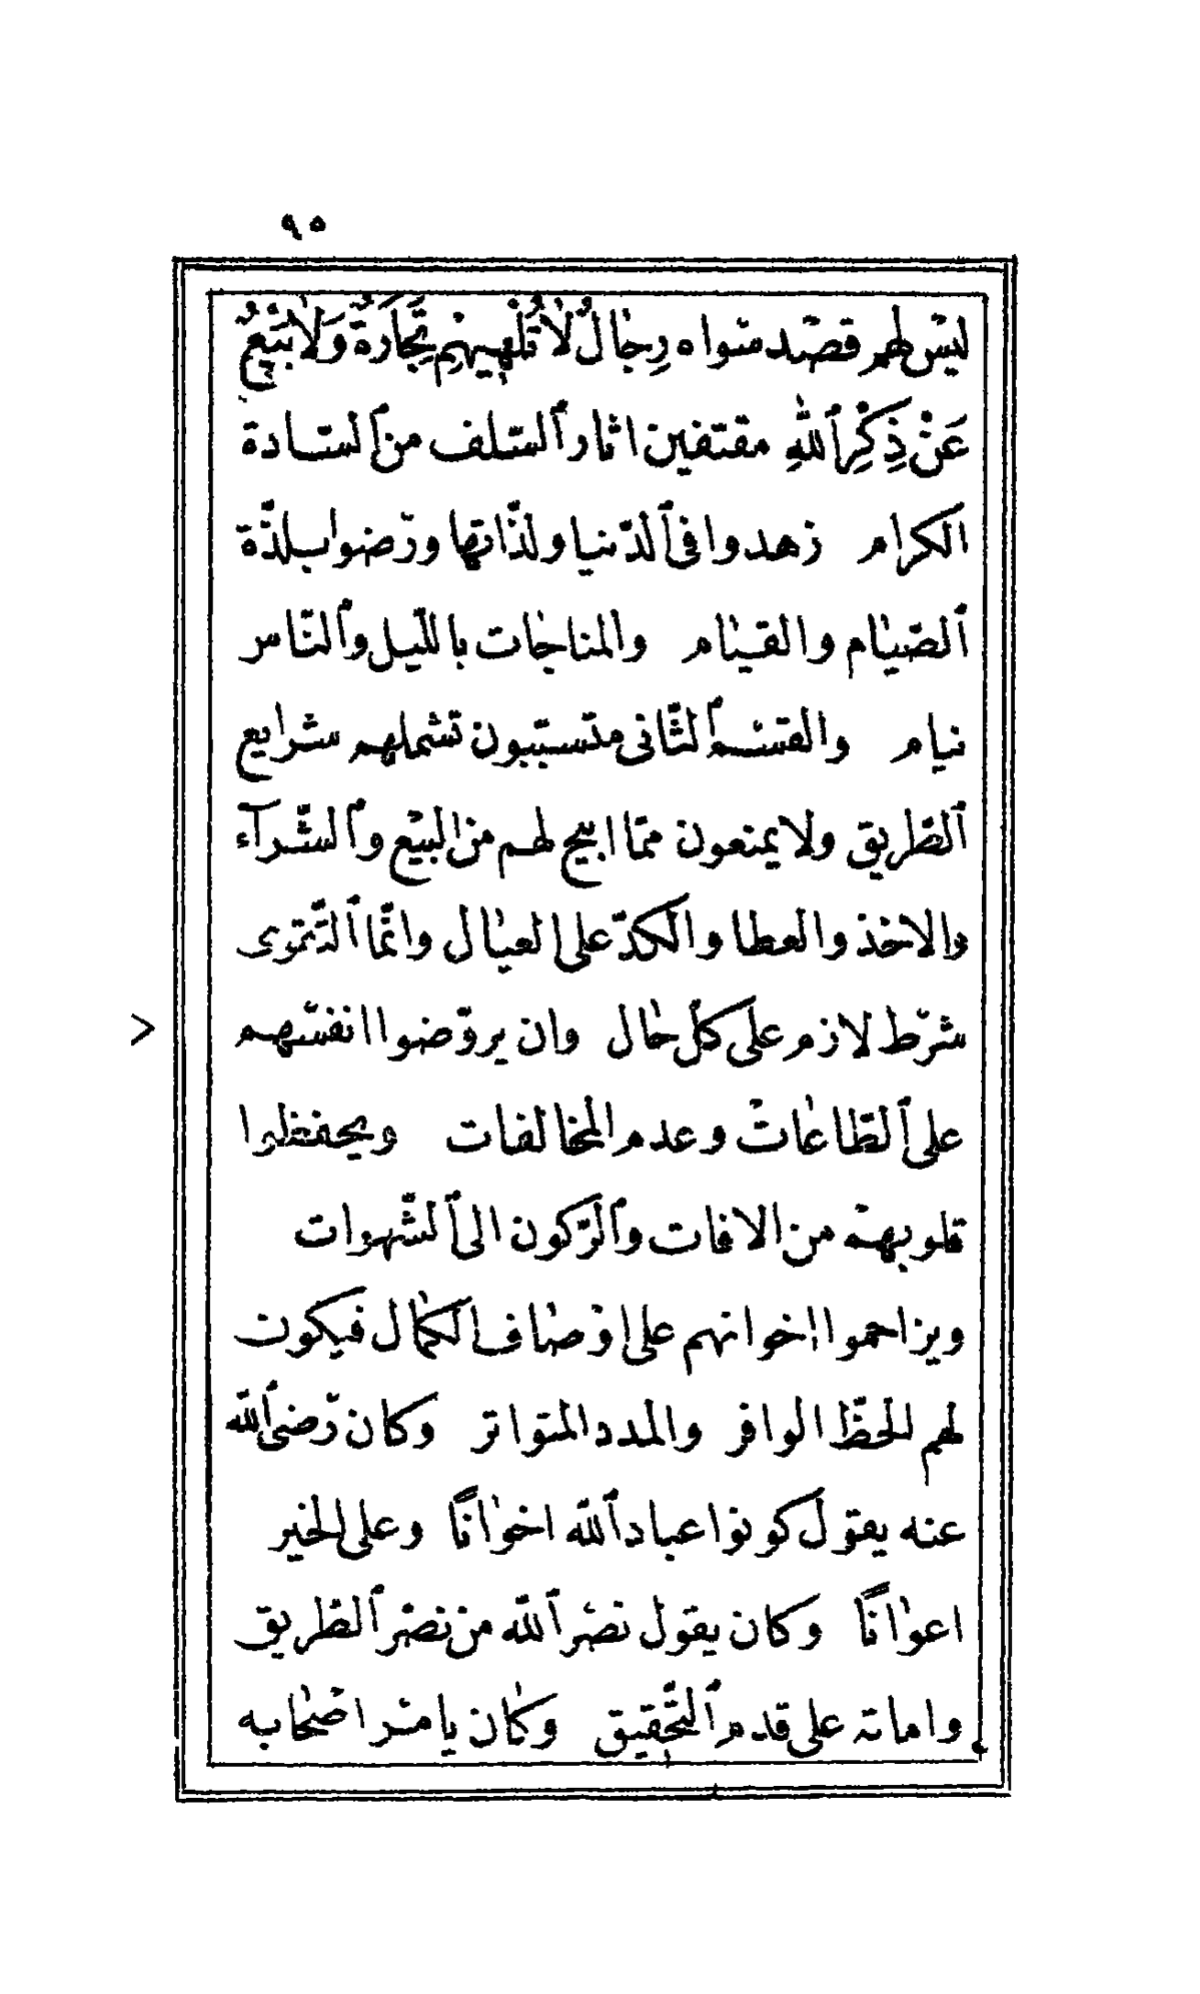 ٩٥
ليس لهم قصد سواه رِجَالٌ لَا تُلْهِيهِم تِجَارَةٌ وَلَا بَيْعٌ
عَنْ ذِكْرِ ٱللهِ مقتفين اثار ٱلسّلف من ٱلسّادة
الكرام زهدوا فى ٱلدّنيا ولذّاتها ورضوا بلذّة
ٱلصّيام والقيام والمناجات بالليل وٱلنّاس
نيام والقسم ٱلثّانى متسبّبون تشملهم شرايع
ٱلطّريق ولا يمنعون ممّا ابيح لهم من البيع وٱلشّرآء
والاخذ والعطا والكدّ على العيال وانّما ٱلتّقوى
شرط لازم على كلّ حال وان يروّضوا انفسهم
على ٱلطّاعات وعدم المخالفات ويحفظوا
قلوبهم من الافات وٱلرّكون الى ٱلشّهوات
ويزاحموا اخوانهم على اوصاف الكمال فيكون
لهم الحظّ الوافر والمدد المتواتر وكان رضى ٱللّه
عنه يقول كونوا عباد ٱللّه اخوانًا وعلى الخير
اعوانًا وكان يقول نصر ٱللّه من نصر ٱلطّريق
واماته على قدم ٱلتّحقيق وكان يامر اصحابه